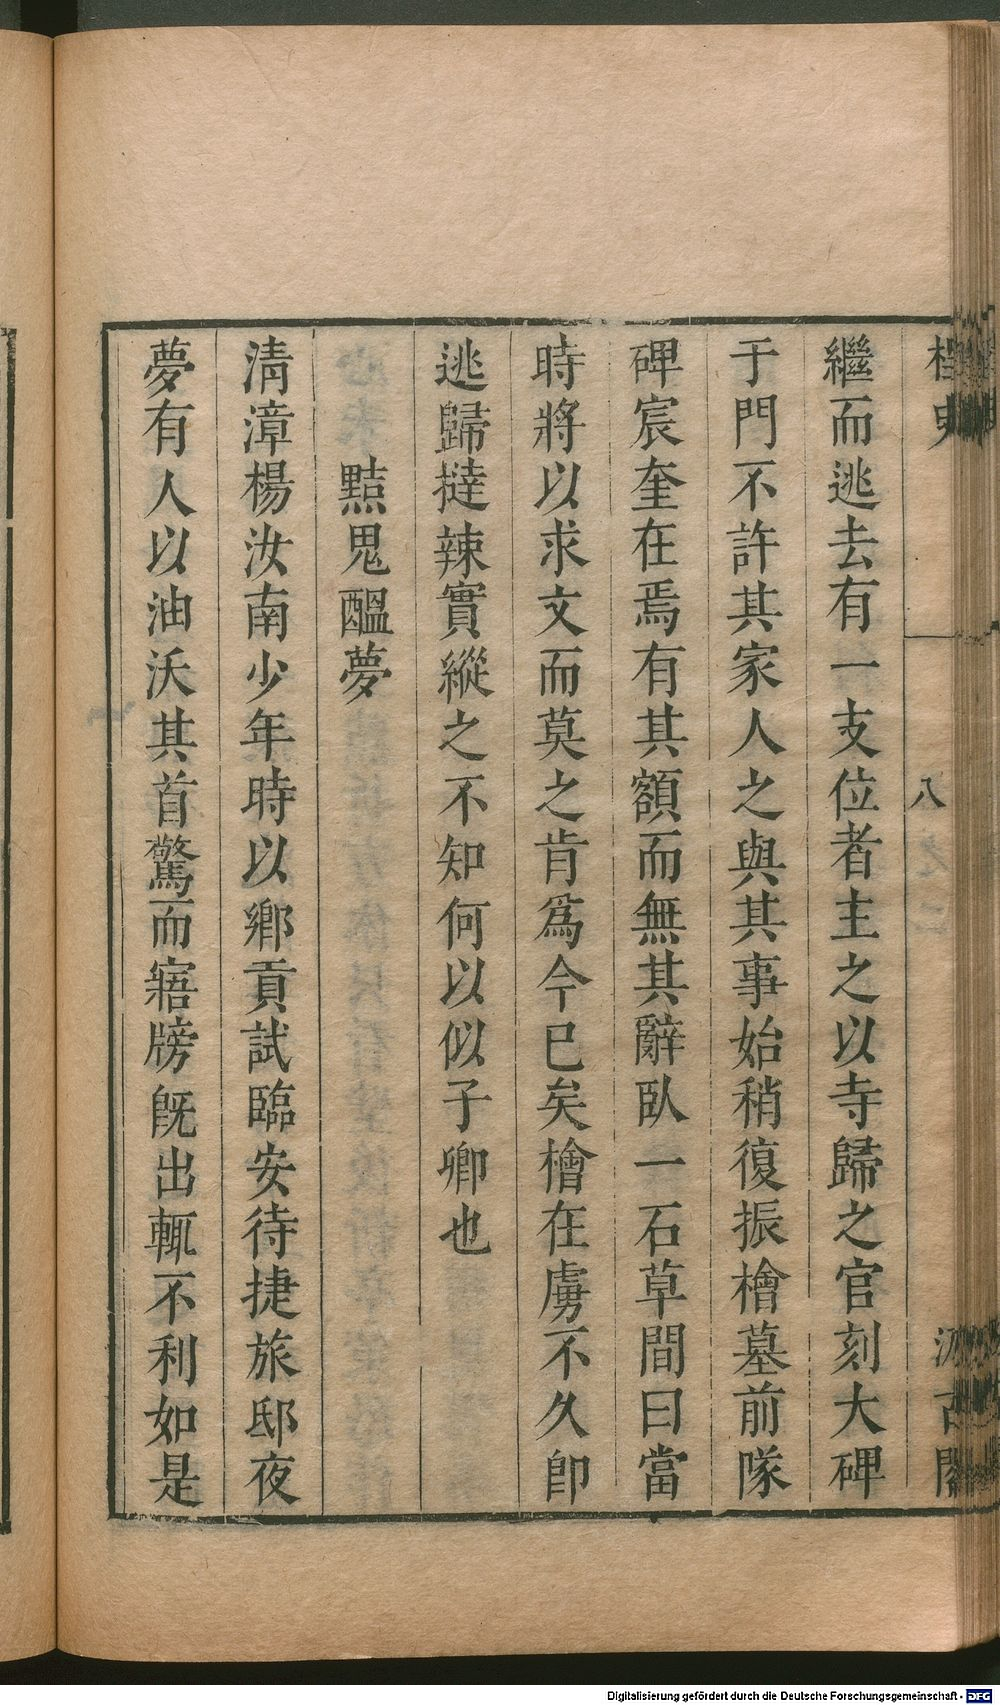 桯史
八
汲古閣
繼而逃去有一支位者主之以寺歸之官刻大碑
于門不許其家人之與其事始稍復振檜墓前隊
碑宸奎在焉有其額而無其辭臥一石草間曰當
時將以求文而莫之肯爲今巳矣檜在虜不久卽
逃歸撻辣實縱之不知何以似子卿也
㸃鬼醖夢
淸漳楊汝南少年時以鄉貢試臨安待捷旅邸夜
夢有人以油沃其首驚而寤牓旣出輒不利如是
Digitalisierung gefördert durch die Deutsche Forschungsgemeinschaft - DFG